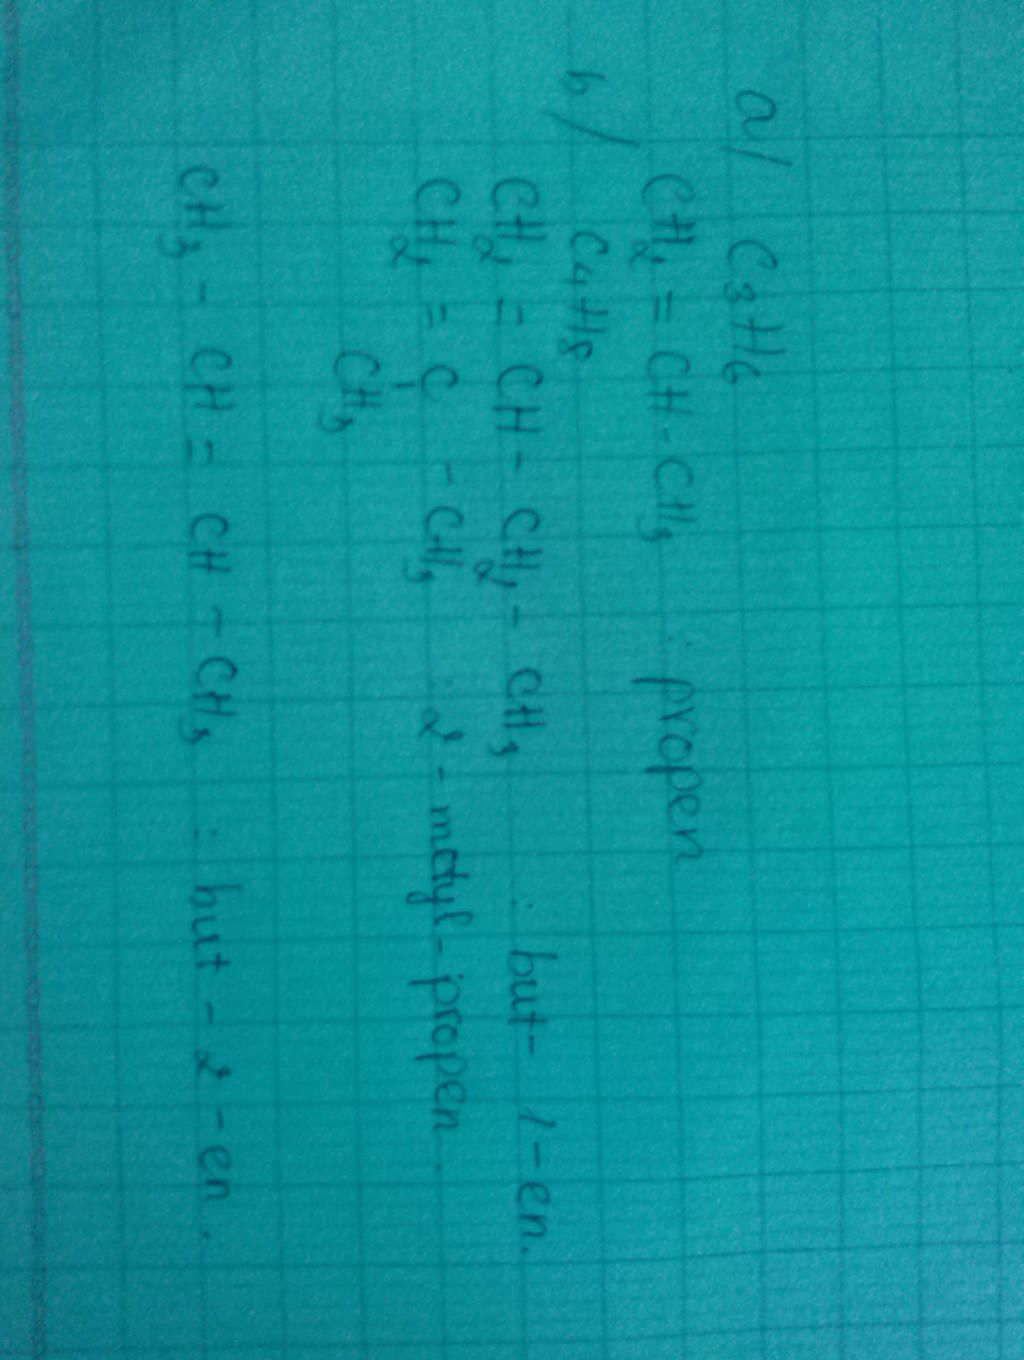 a/ C₃H₆
CH₂ = CH - CH₃ : propen
b/ C₄H₈
CH₂ = CH - CH₂ - CH₃ : but - 1 - en.
CH₂ = C - CH₃ : 2 - metyl - propen.
CH₃
CH₃ - CH = CH - CH₃ : but - 2 - en.